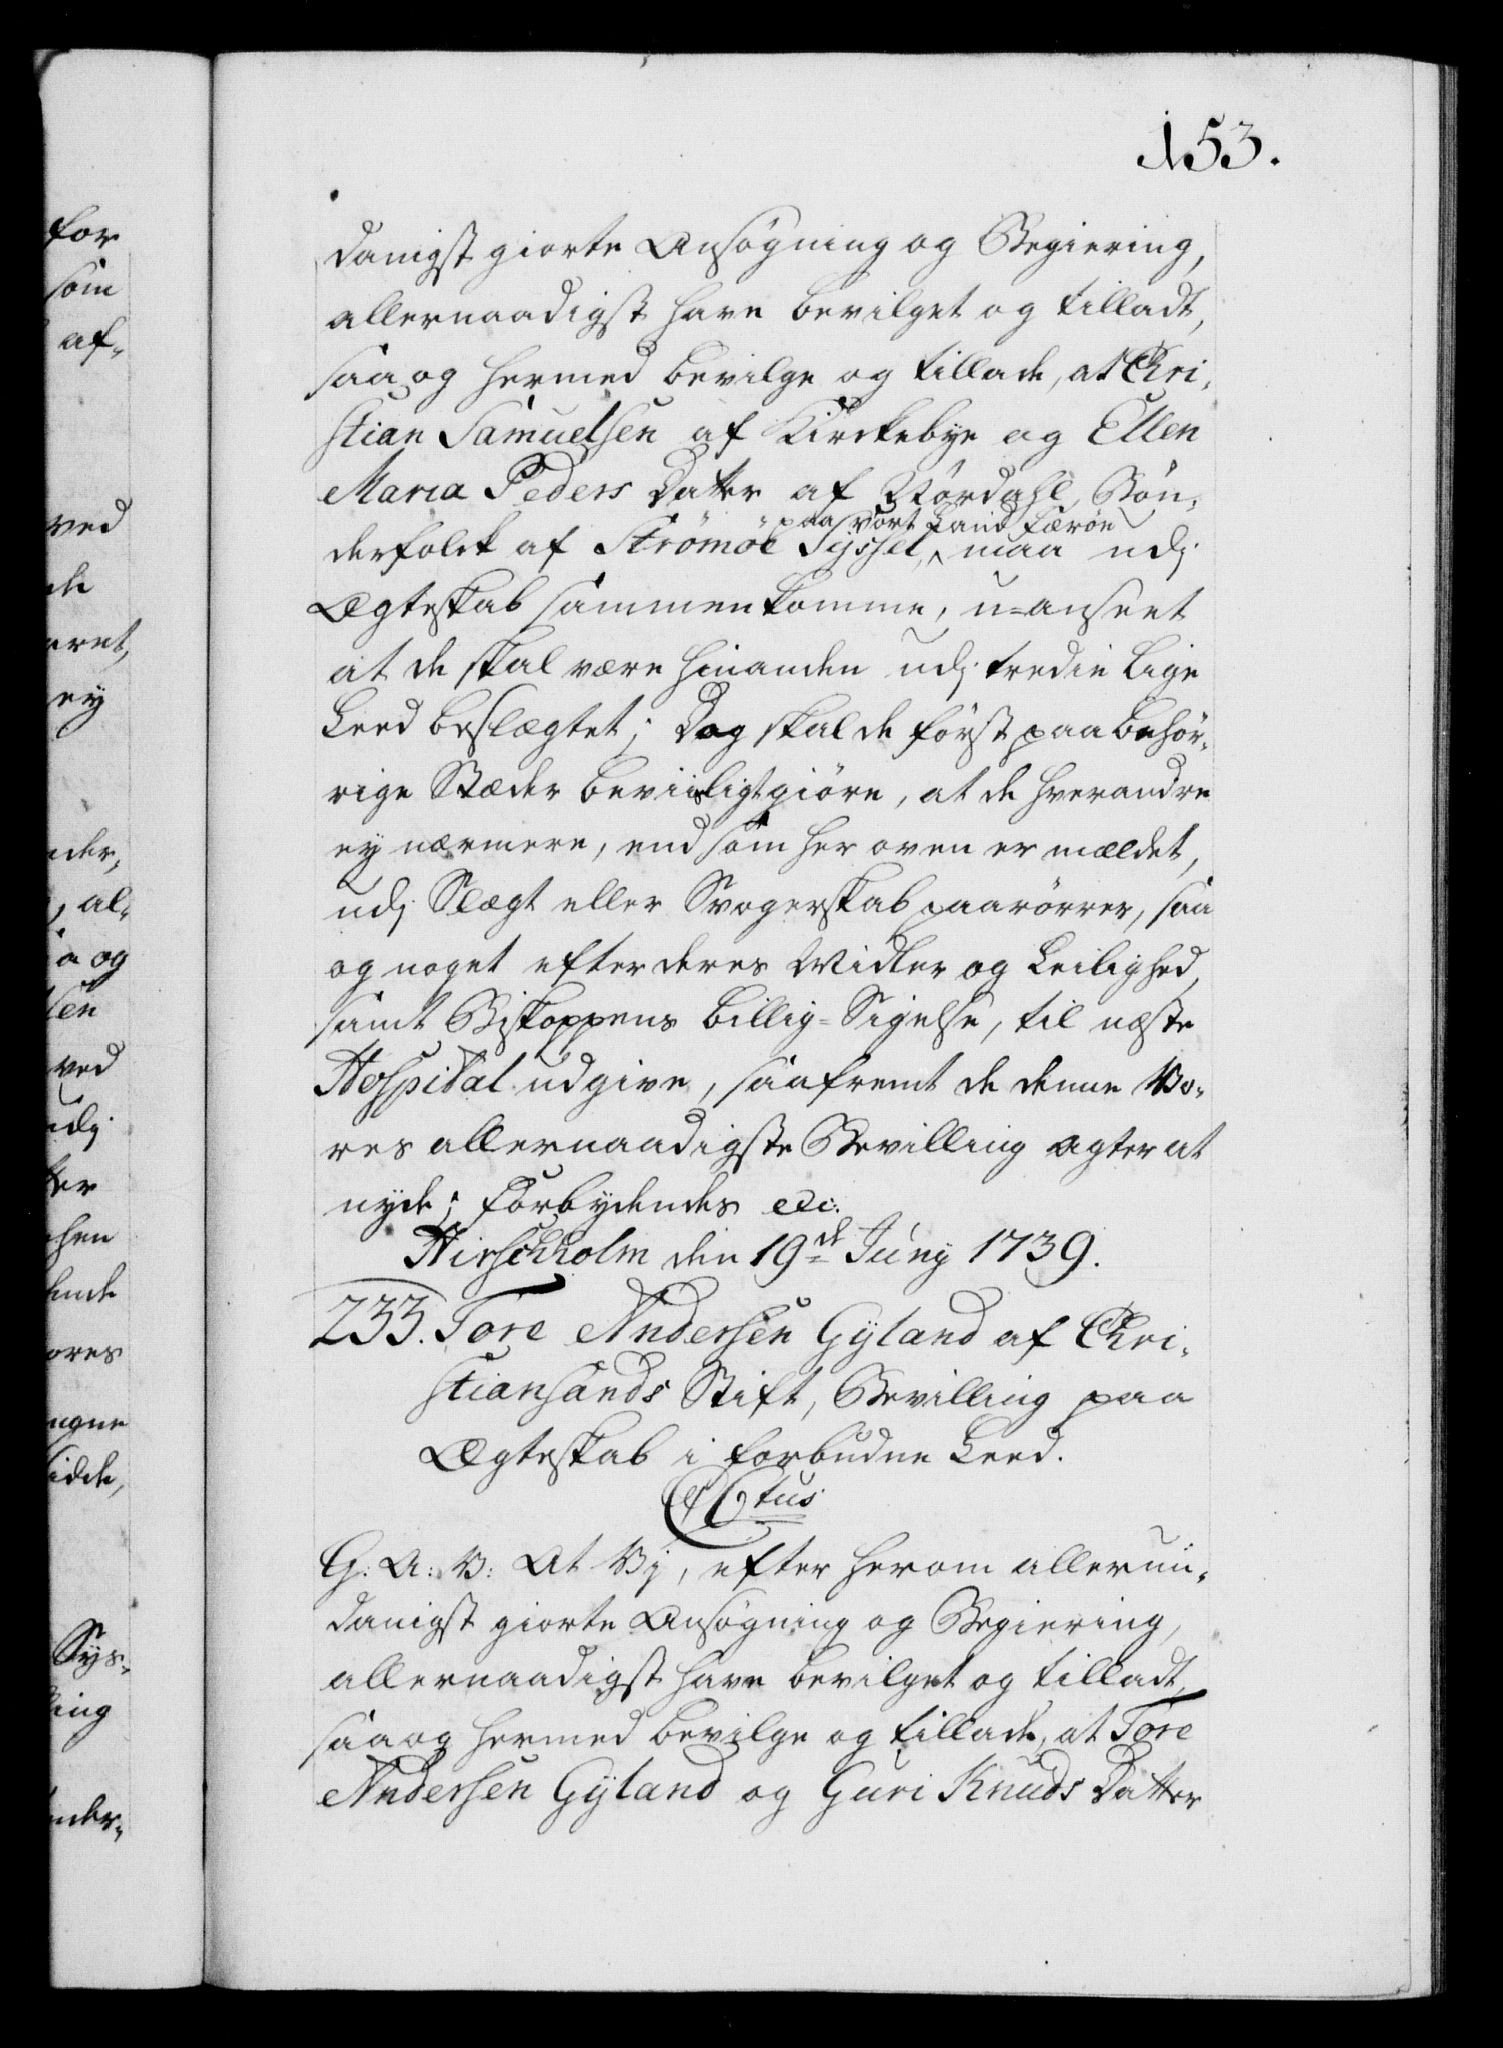 153.
for
som
af-
danigst giorte Ansøgning og Begiering,
allernaadigst have bevilget og tilladt,
saa og hermed bevilge og tillade, at Chri-
stian Samuelsen af Kirckebye og Ellen
Maria Peders Datter af Nördahl, Bøn-
paa vort Land Færöe
derfolck af Strömöe Sÿssel, maa udj
Ægteskab sammenkomme, u-anseet
at de skal være hinanden udj tredie Lige
Leed beslægtet; Dog skal de först paa behör-
rige Stæder beviisligt giöre, at de hverandre
ey nærmere, end som her oven er mældet,
udj Slægt eller Svogerskab paarörrer, saa
og noget efter deres Midler og Leilighed,
samt Biskoppens billig-Sigelse, til næste
Hospital udgive, saafremt de denne Vo-
res allernaadigste Bevilling agter at
nyde; Forbydendes etc.
Hirschholm den 19de Junÿ 1739.
233. Tore Andersen Gÿland af Chri-
stiansands Stift, Bevilling paa
Ægteskab i forbudne Leed.
C 6tus
G: A: V: At Vj, efter herom allerun-
danigst giorte Ansøgning og Begiering,
allernaadigst have bevilget og tilladt,
saa og hermed bevilge og tillade, at Tore
Andersen Gÿland og Guri Knuds Datter
ved
ey
al-
a og
sen
ved
udj
ores
Sys-
ing